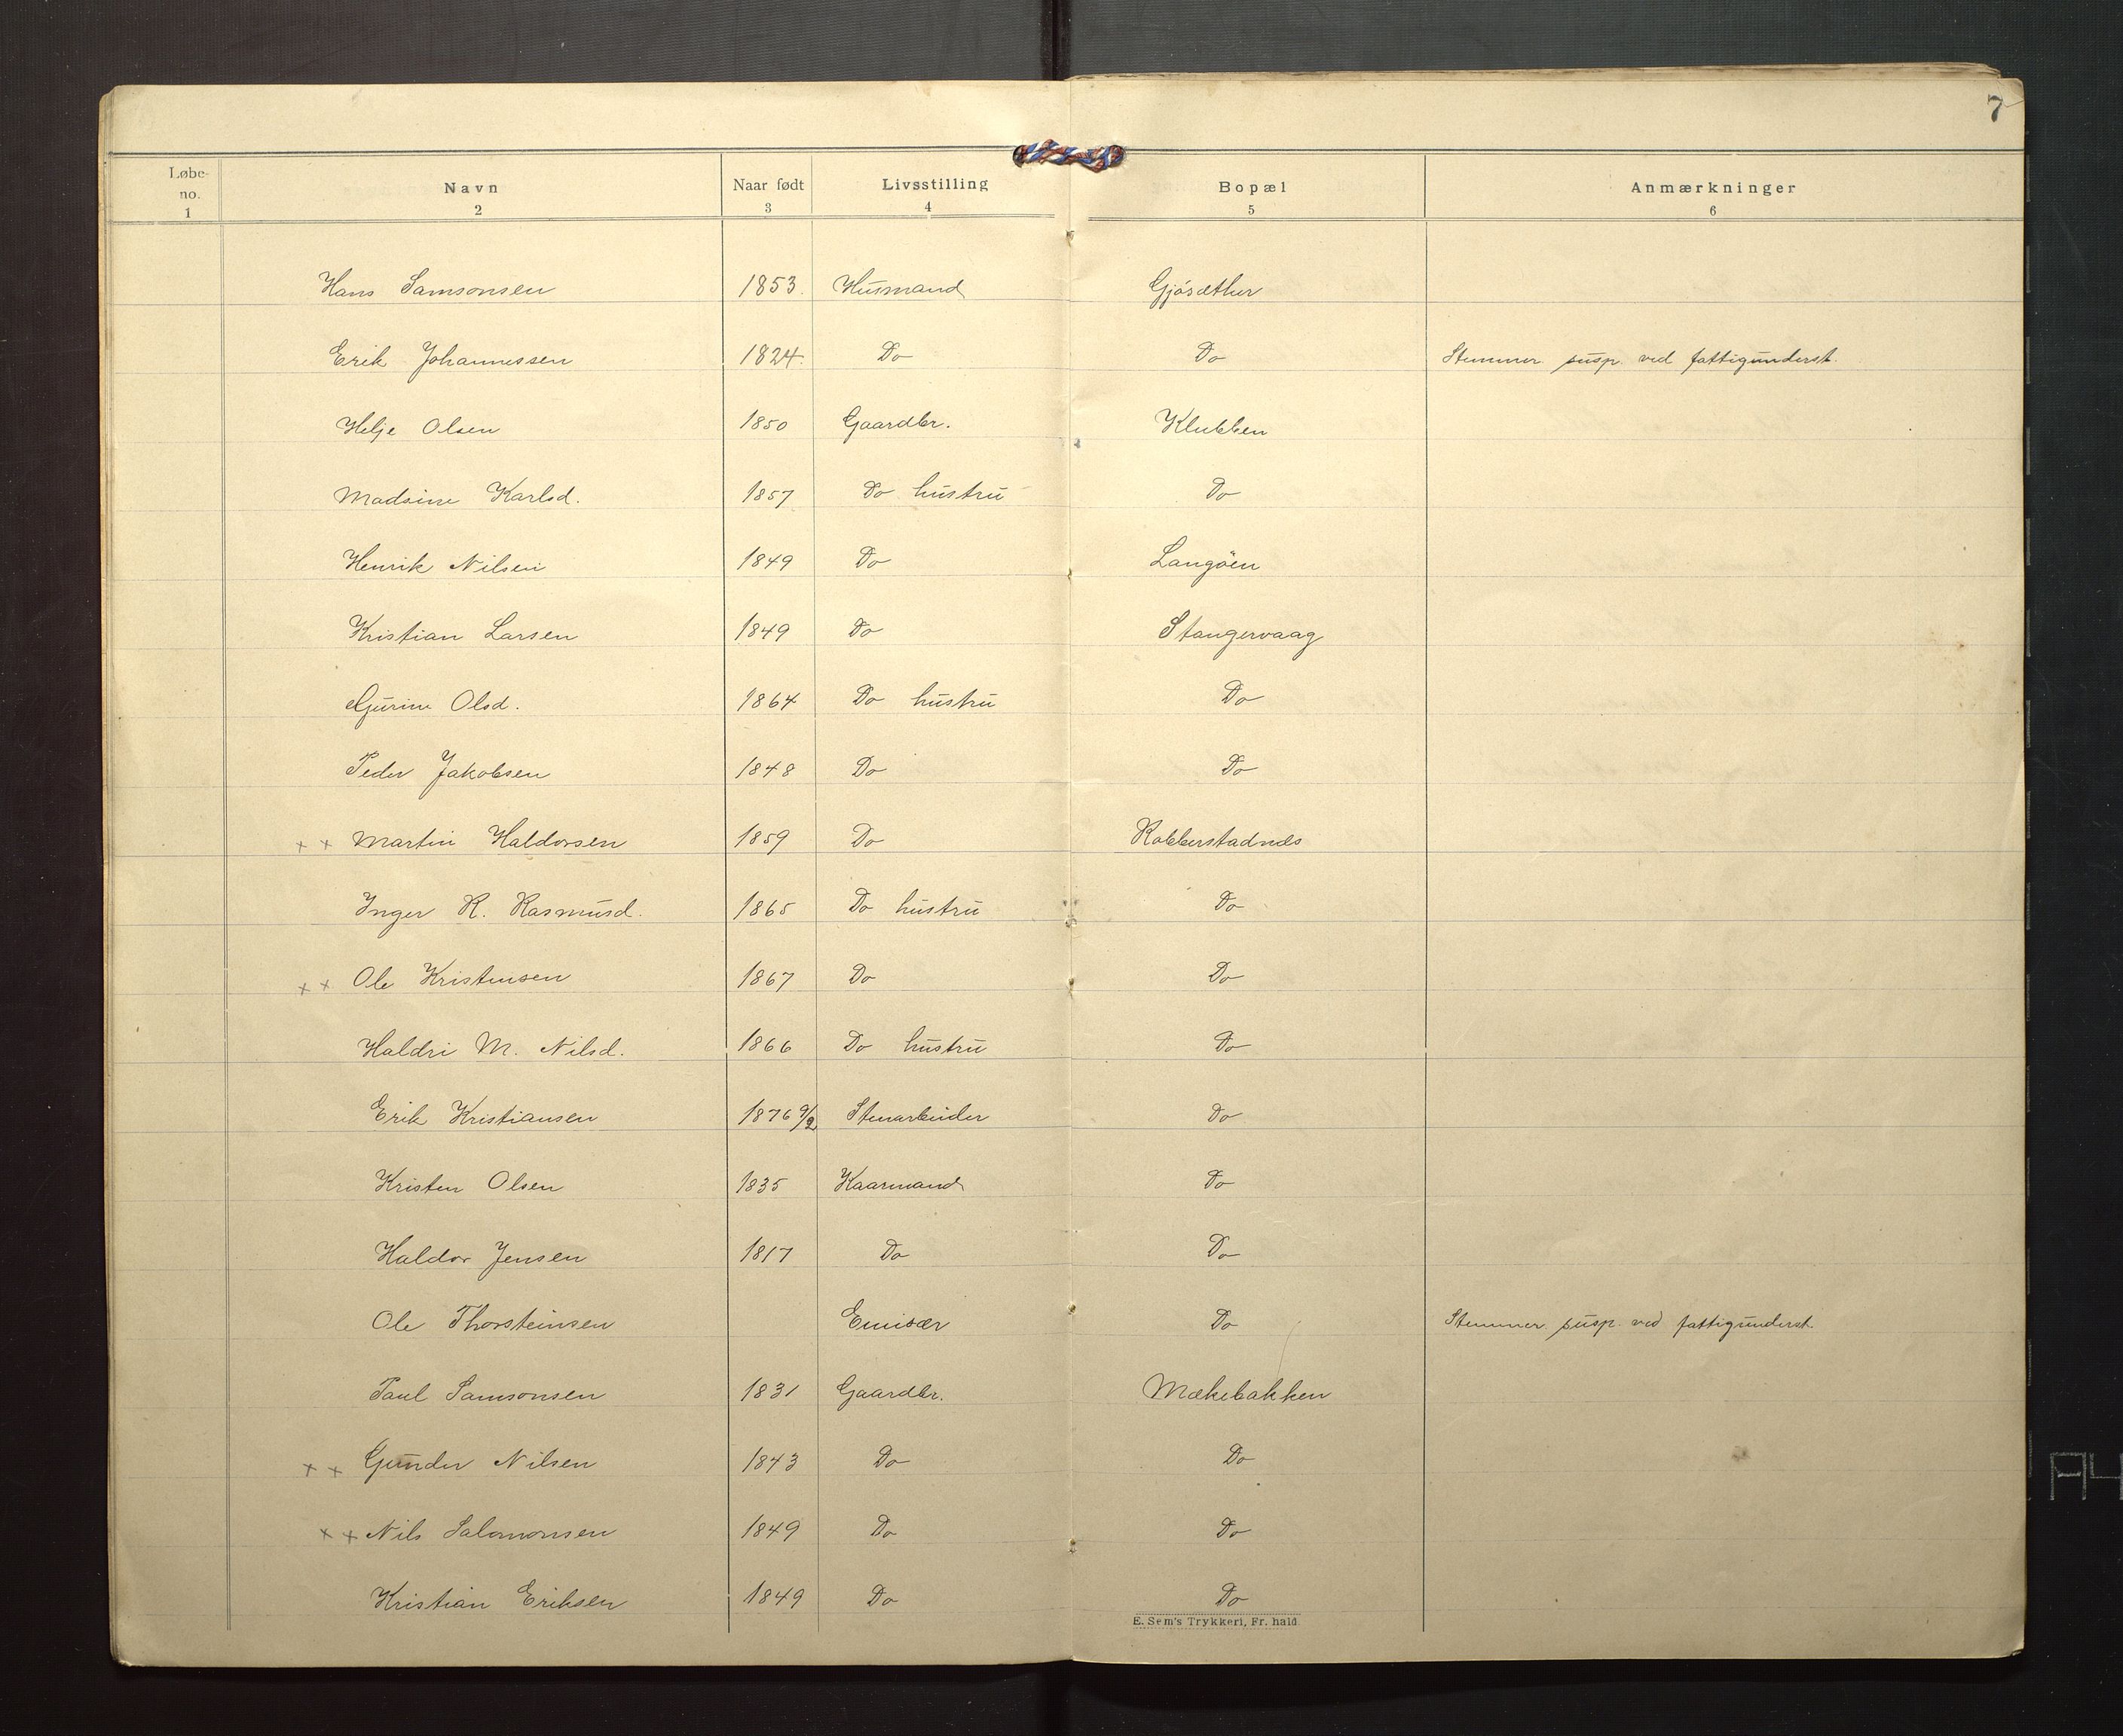 7
Løbe-no. Navn Naar født Livsstilling Bopæl Anmærkninger
1 2 3 4 5 6
Hans Samsonsen 1853. Husmand Gjøsæther
Erik Johannessen 1824. Do Do Stemmer. susp. ved fattigunderst.
Helje Olsen 1850 Gaardbr. Klubben
Madsine Karlsd. 1857 Do hustru Do
Henrik Nilsen 1849 Do Langöen
Kristian Larsen 1849 Do Stangervaag
Gjurine Olsd. 1864 Do hustru Do
Peder Jakobsen 1848 Do Do
x x Martin Haldorsen 1859 Do Robberstadnes
Inger R. Rasmusd. 1865 Do hustru Do
x x Ole Kristensen 1867 Do Do
Haldri M. Nilsd. 1866 Do hustru Do
Erik Kristiansen 1876 9/2 Stenarbeider Do
Kristen Olsen 1835 Kaarmand Do
Haldor Jensen 1817 Do Do
Ole Thorsteinsen Emisær Do Stemmer. susp. ved fattigunderst.
Paul Samsonsen 1831 Gaardbr. Mækebakken
x x Gunder Nilsen 1843 Do Do
x x Nils Salomonsen 1849 Do Do
Kristian Eriksen 1849 Do Do
E. Sem's Trykkeri, Fr. hald